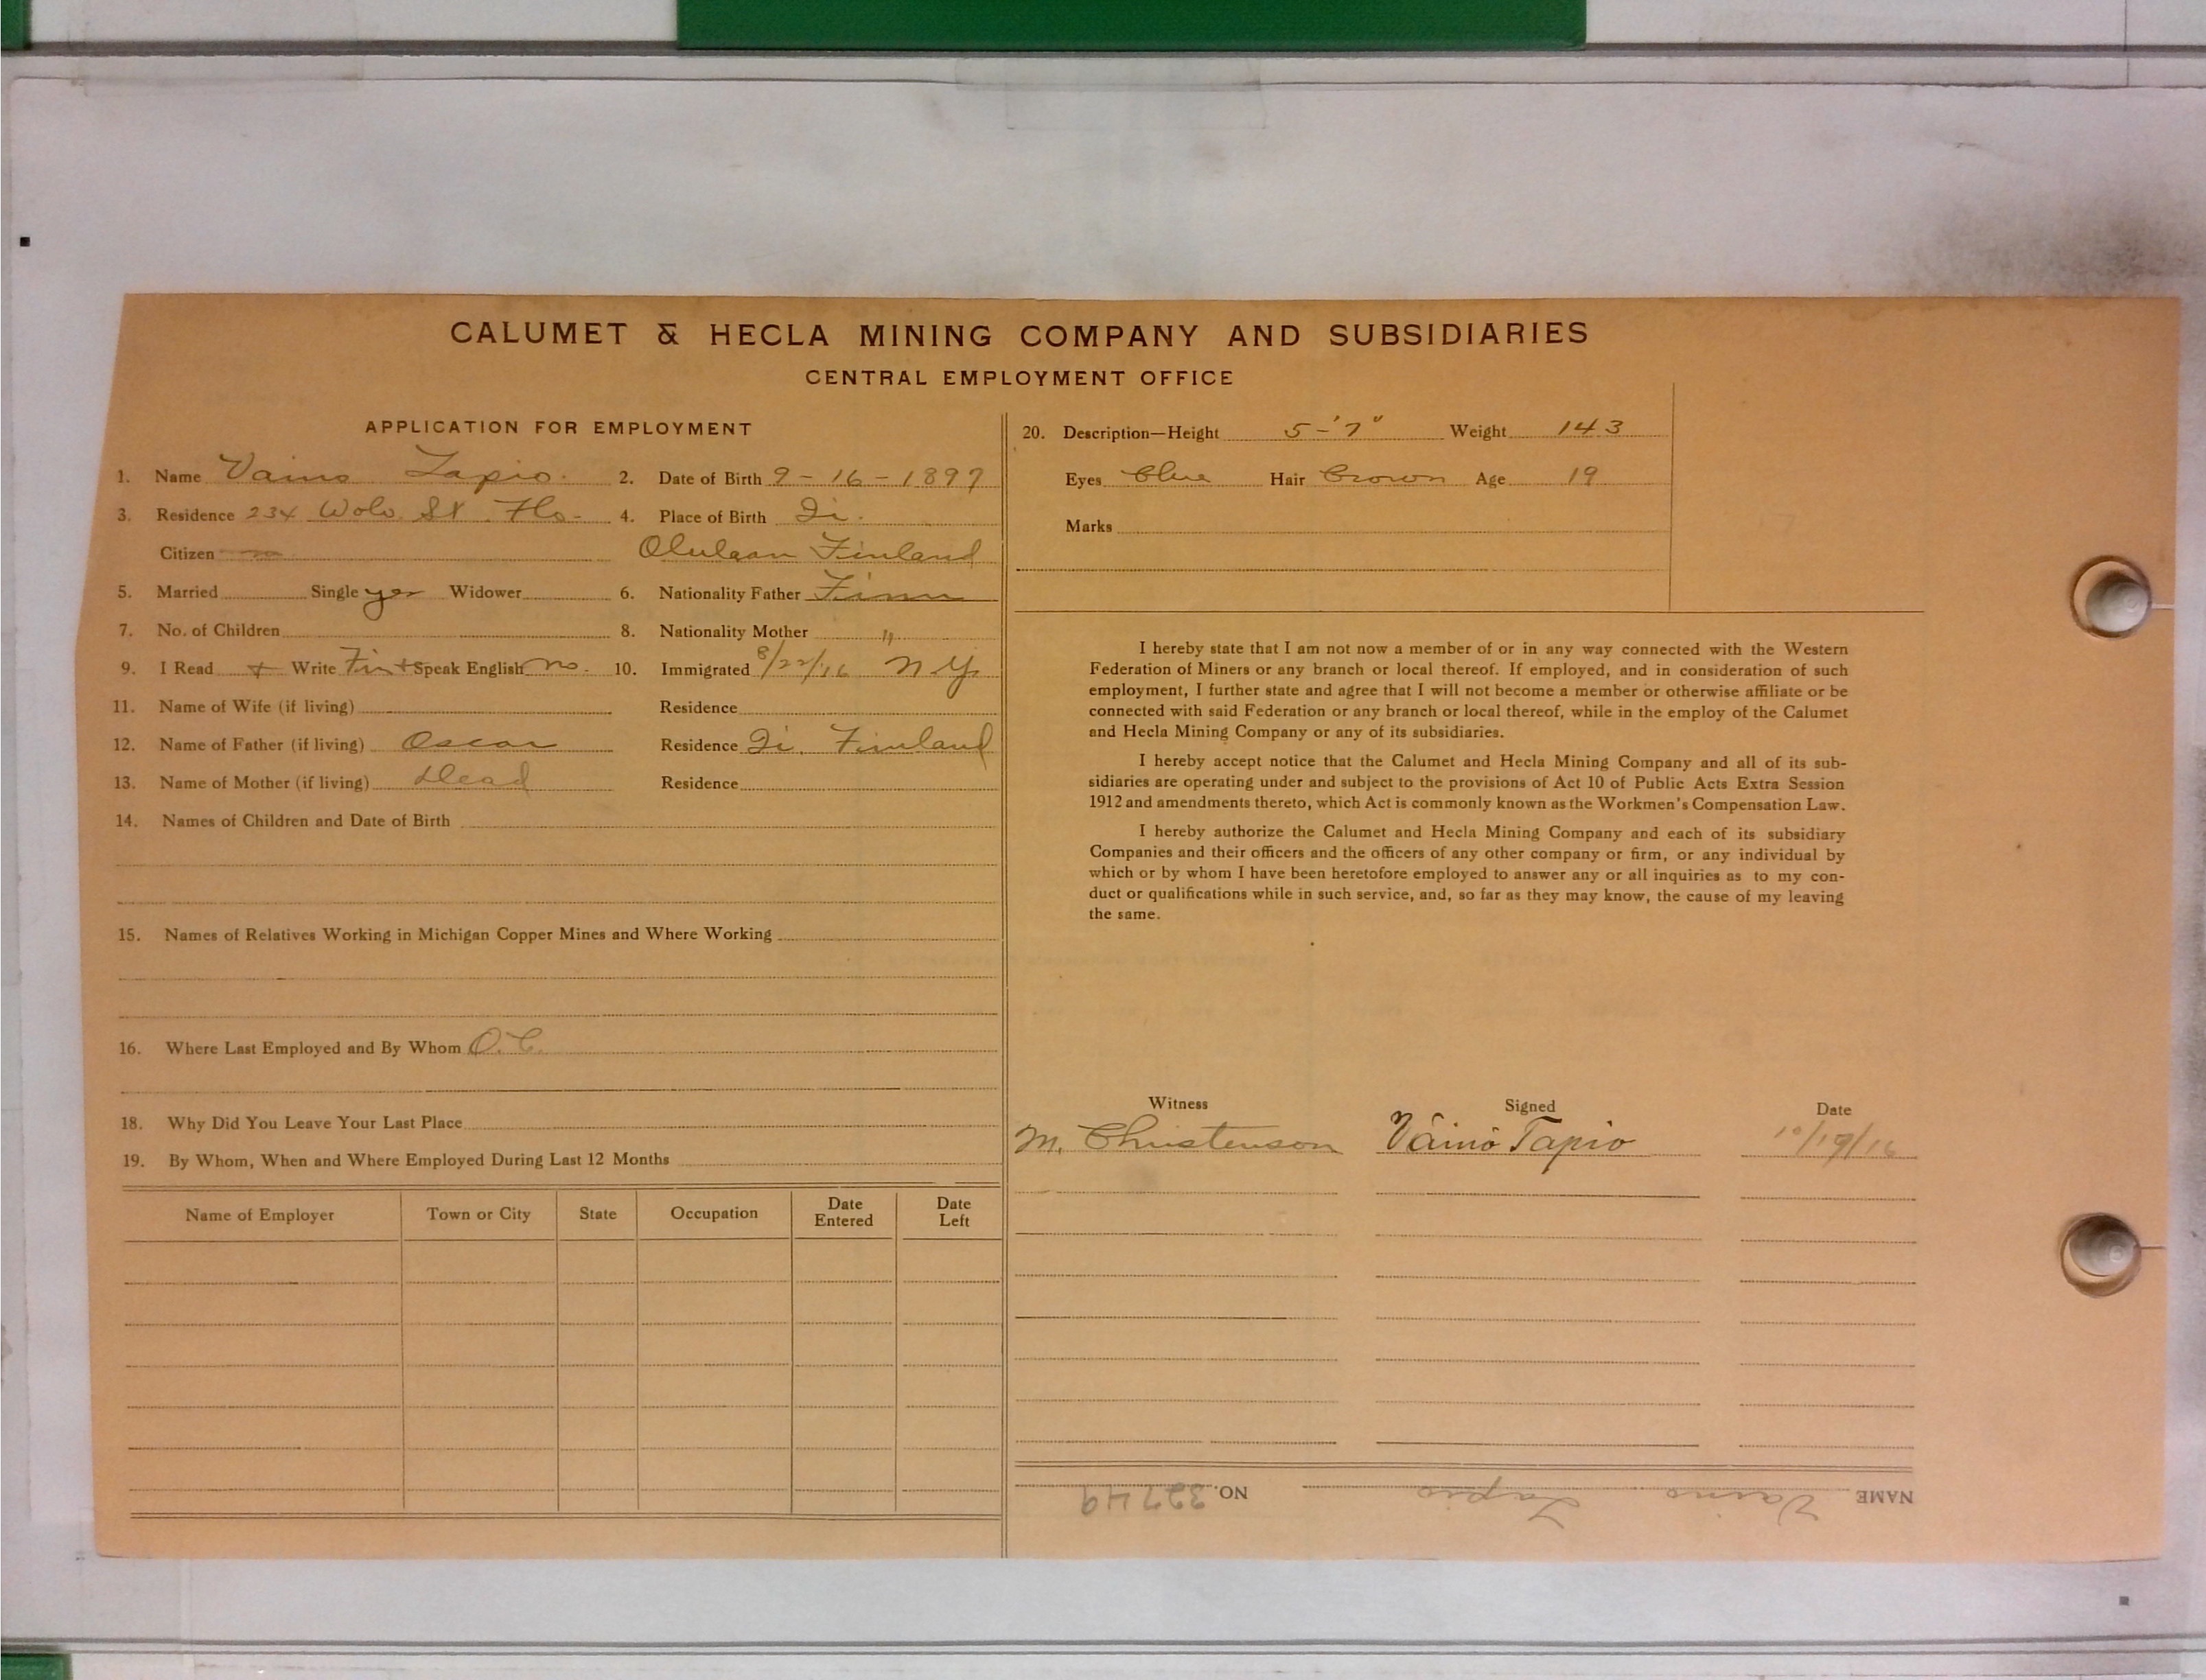 CALUMET & HECLA MINING COMPANY AND SUBSIDIARIES
CENTRAL EMPLOYMENT OFFICE
APPLICATION FOR EMPLOYMENT
1. Name Vaino Tapio. 2. Date of Birth 9-16-1897
3. Residence 234 Wolv. St. Flo. 4. Place of Birth Ii.
Citizen Olulaan Finland
5. Married Single yes Widower 6. Nationality Father Finn
7. No. of Children 8. Nationality Mother "
9. I Read + Write Fin + Speak English no. 10. Immigrated 8/22/16 N.Y.
11. Name of Wife (if living) Residence
12. Name of Father (if living) Oscar Residence Ii. Finland
13. Name of Mother (if living) Dead Residence
14. Names of Children and Date of Birth
15. Names of Relatives Working in Michigan Copper Mines and Where Working
16. Where Last Employed and By Whom O.C.
18. Why Did You Leave Your Last Place
19. By Whom, When and Where Employed During Last 12 Months
Name of Employer Town or City State Occupation Date Entered Date Left
20. Description—Height 5-'7" Weight 143
Eyes Blue Hair Brown Age 19
Marks
I hereby state that I am not now a member of or in any way connected with the Western
Federation of Miners or any branch or local thereof. If employed, and in consideration of such
employment, I further state and agree that I will not become a member or otherwise affiliate or be
connected with said Federation or any branch or local thereof, while in the employ of the Calumet
and Hecla Mining Company or any of its subsidiaries.
I hereby accept notice that the Calumet and Hecla Mining Company and all of its sub-
sidiaries are operating under and subject to the provisions of Act 10 of Public Acts Extra Session
1912 and amendments thereto, which Act is commonly known as the Workmen's Compensation Law.
I hereby authorize the Calumet and Hecla Mining Company and each of its subsidiary
Companies and their officers and the officers of any other company or firm, or any individual by
which or by whom I have been heretofore employed to answer any or all inquiries as to my con-
duct or qualifications while in such service, and, so far as they may know, the cause of my leaving
the same.
Witness Signed Date
M. Christenson Väinö Tapio 10/19/16
NAME Vaino Tapio NO. 32749